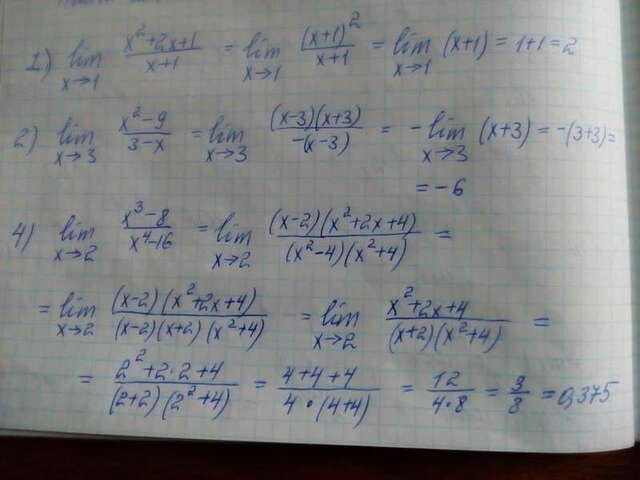 1) lim x→1 (x²+2x+1)/(x+1) = lim x→1 (x+1)²/(x+1) = lim x→1 (x+1) = 1+1 = 2
2) lim x→3 (x²-9)/(3-x) = lim x→3 ((x-3)(x+3))/(-(x-3)) = - lim x→3 (x+3) = -(3+3) =
= -6
4) lim x→2 (x³-8)/(x⁴-16) = lim x→2 ((x-2)(x²+2x+4))/((x²-4)(x²+4)) =
= lim x→2 ((x-2)(x²+2x+4))/((x-2)(x+2)(x²+4)) = lim x→2 (x²+2x+4)/((x+2)(x²+4)) =
= (2²+2·2+4)/((2+2)(2²+4)) = (4+4+4)/(4·(4+4)) = 12/(4·8) = 3/8 = 0,375